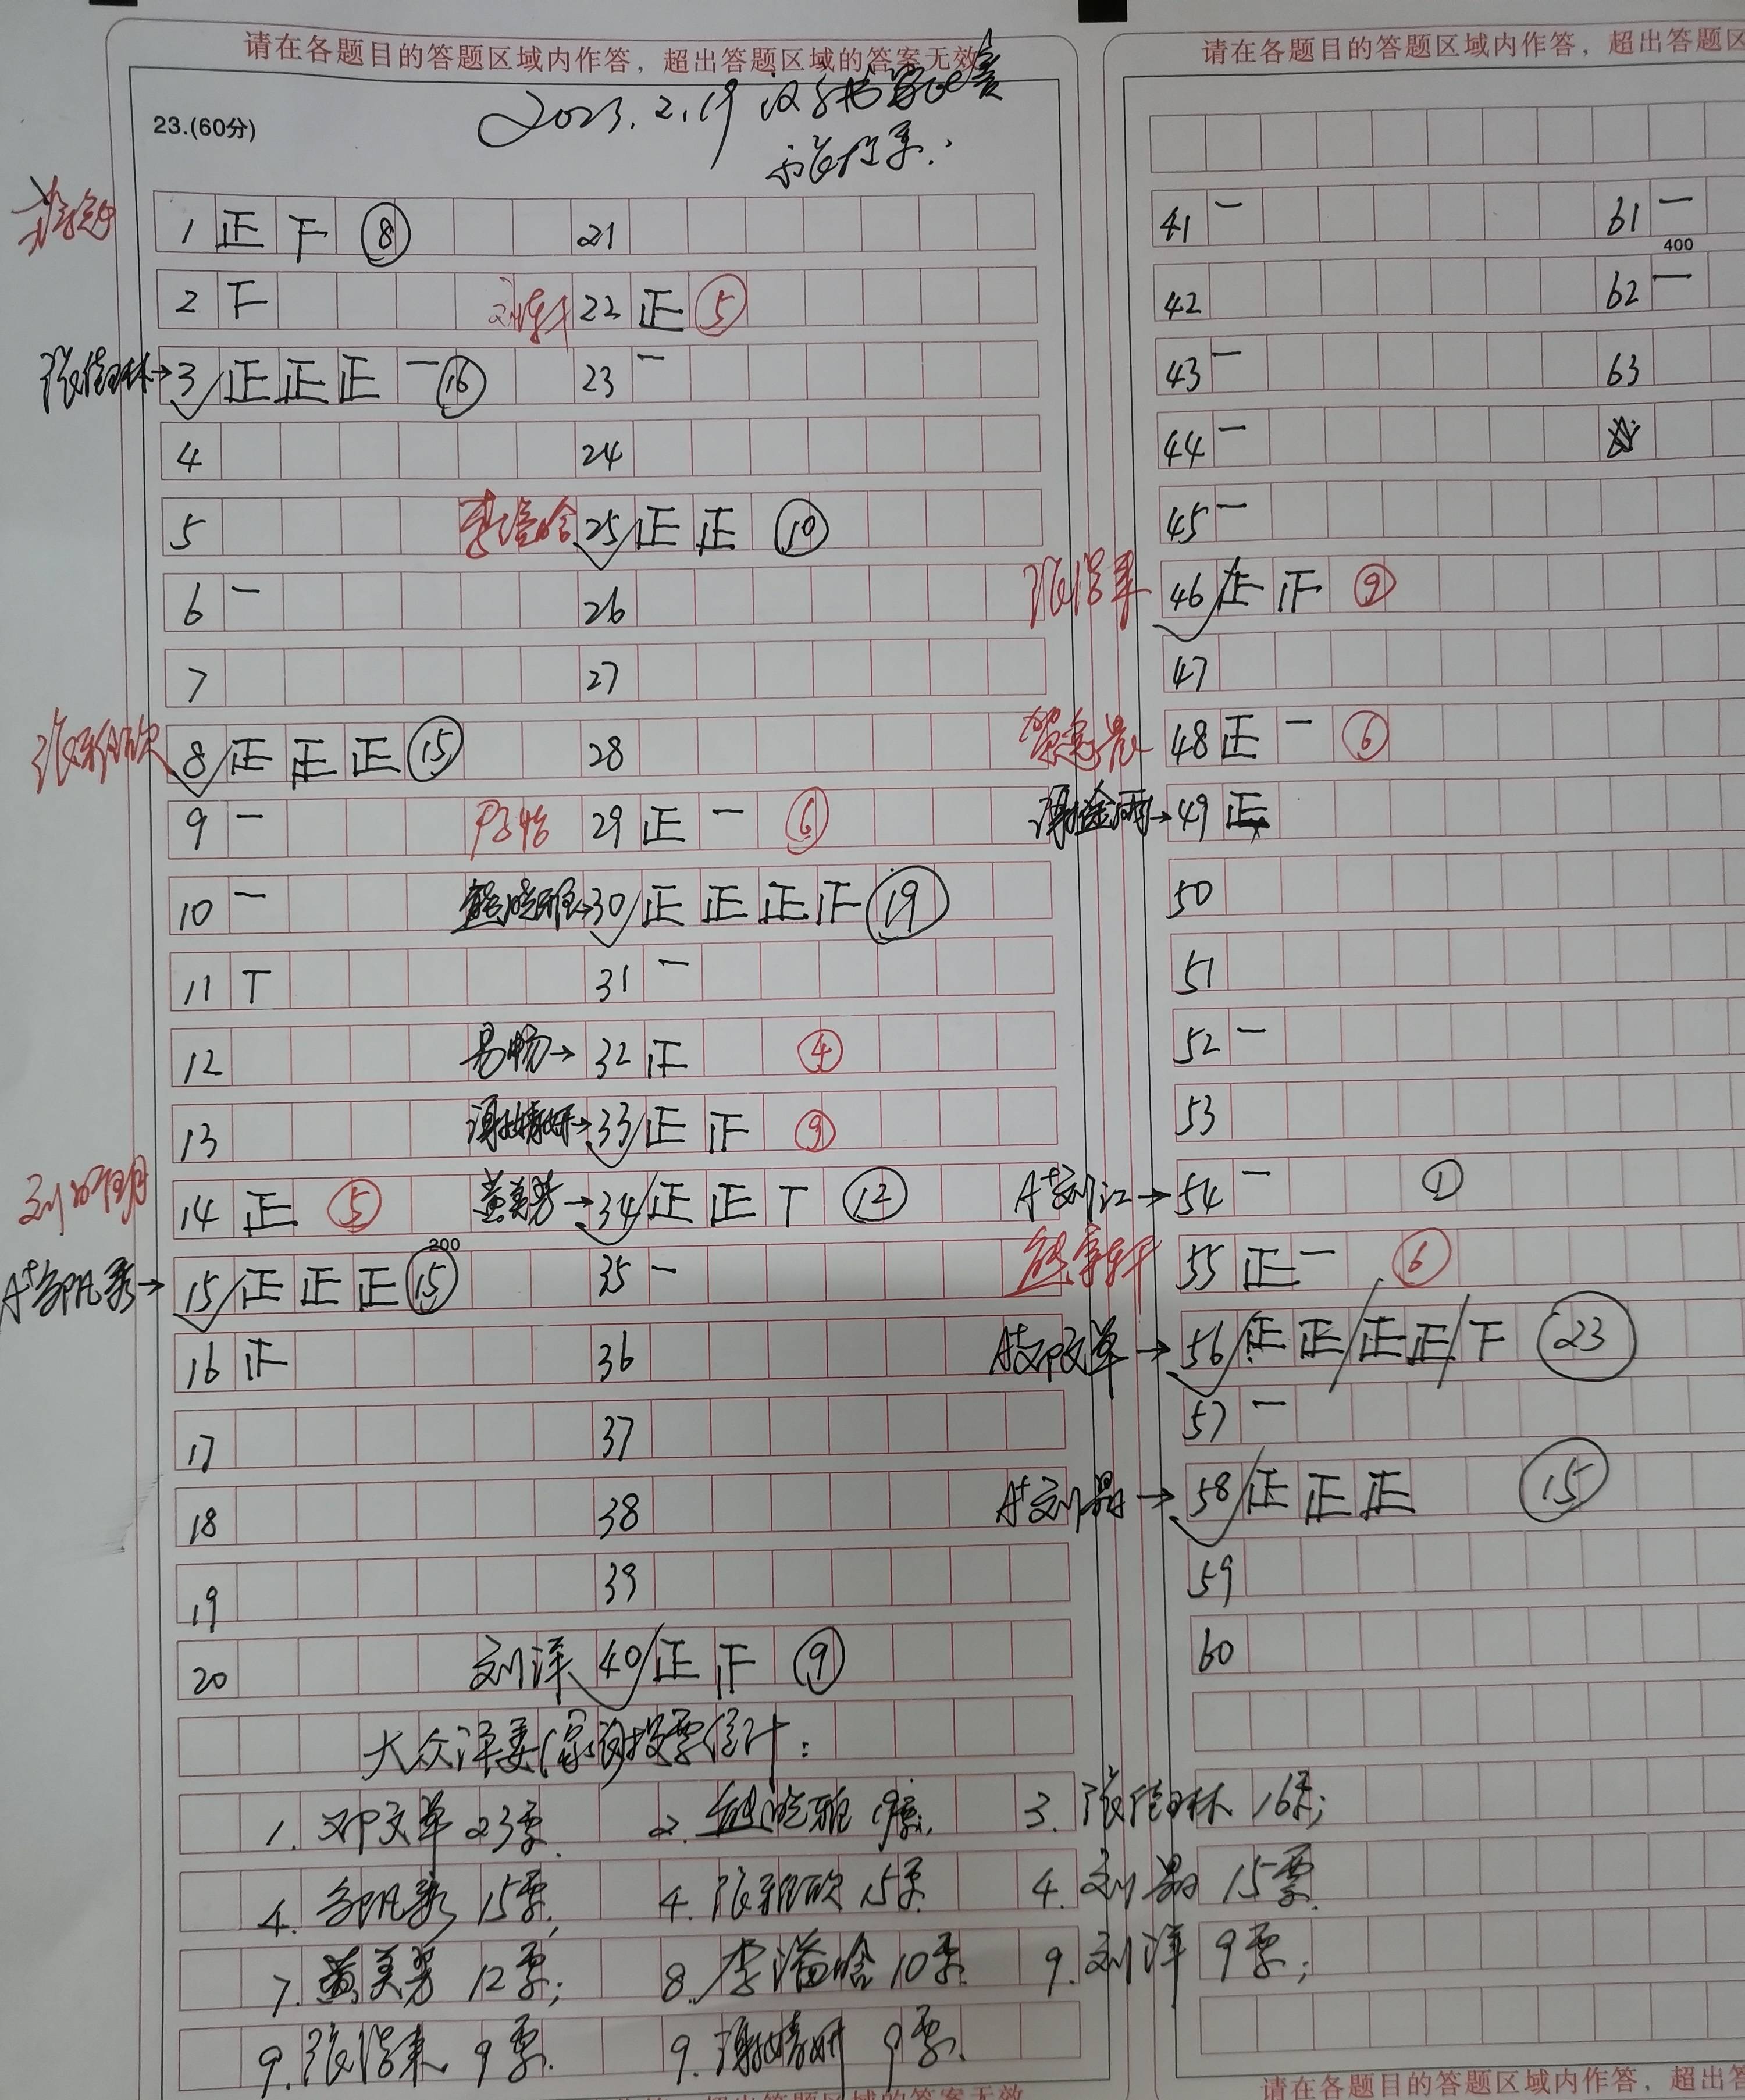 请在各题目的答题区域内作答，超出答题区域的答案无效
23.(60分)
2023.2.19
1 正 下 ⑧
2 下
张佳琳→3 正 正 正 一 ⑯
4
5
6 一
7
8 正 正 正 ⑮
9 一
10 一
11 丅
12
13
14 正 ⑤
200
15 正 正 正 ⑮
16 正
17
18
19
20
21
22 正 ⑤
23 一
24
25 正 正 ⑩
26
27
28
29 正 一 ⑥
30 正 正 正 正 ⑲
31 一
易畅→32 正 ④
33 正 正 ⑨
黄美芳→34 正 正 丅 ⑫
35 一
36
37
38
39
刘洋 40 正 正 ⑨
大众评委 投票统计：
1. 邓文单 23票
2. 熊晓雅 19票
3. 张佳琳 16票;
4. 15票
4. 15票
4. 刘晶 15票
7. 黄美芳 12票;
8. 李溢晗 10票
9. 刘洋 9票;
9. 9票.
9. 9票.
请在各题目的答题区域内作答，超出答题区
41 一
42
43 一
44 一
45 一
46 正 正 ⑨
47
48 正 一 ⑥
49 正
50
51
52 一
53
A+刘江→54 一 ①
55 正 一 ⑥
A+邓文单→56 正 正 正 正 下 ㉓
57 一
A+刘晶→58 正 正 正 ⑮
59
60
61 一
400
62 一
63
请在各题目的答题区域内作答，超出答